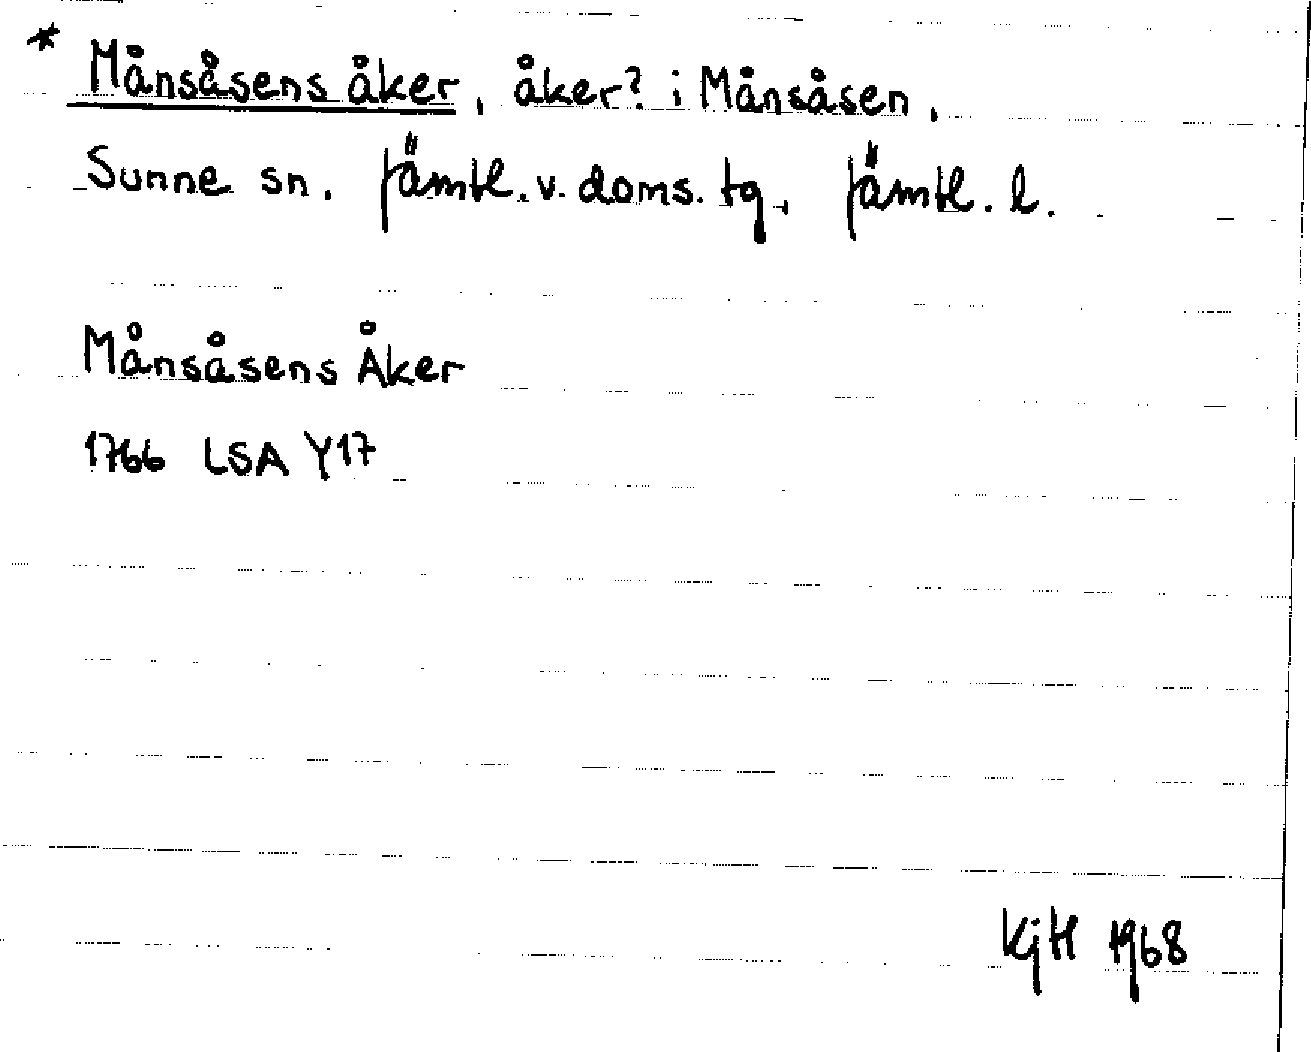 * Månsåsens åker, åker? i Månsåsen,
Sunne sn. Jämtl. v. doms. tg, Jämtl. l.
Månsåsens Åker
1766 LSA Y17
KjH 1968